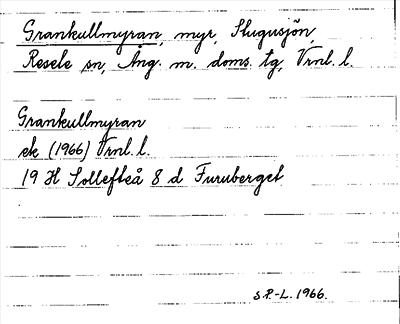 Grankullmyran, myr, Flugusjön,
Resele sn, Ång. m. doms. tg, Vrnl. l.
Grankullmyran
ek (1966) Vrnl. l.
19 H Sollefteå 8 d Furuberget
S.P.-L. 1966.